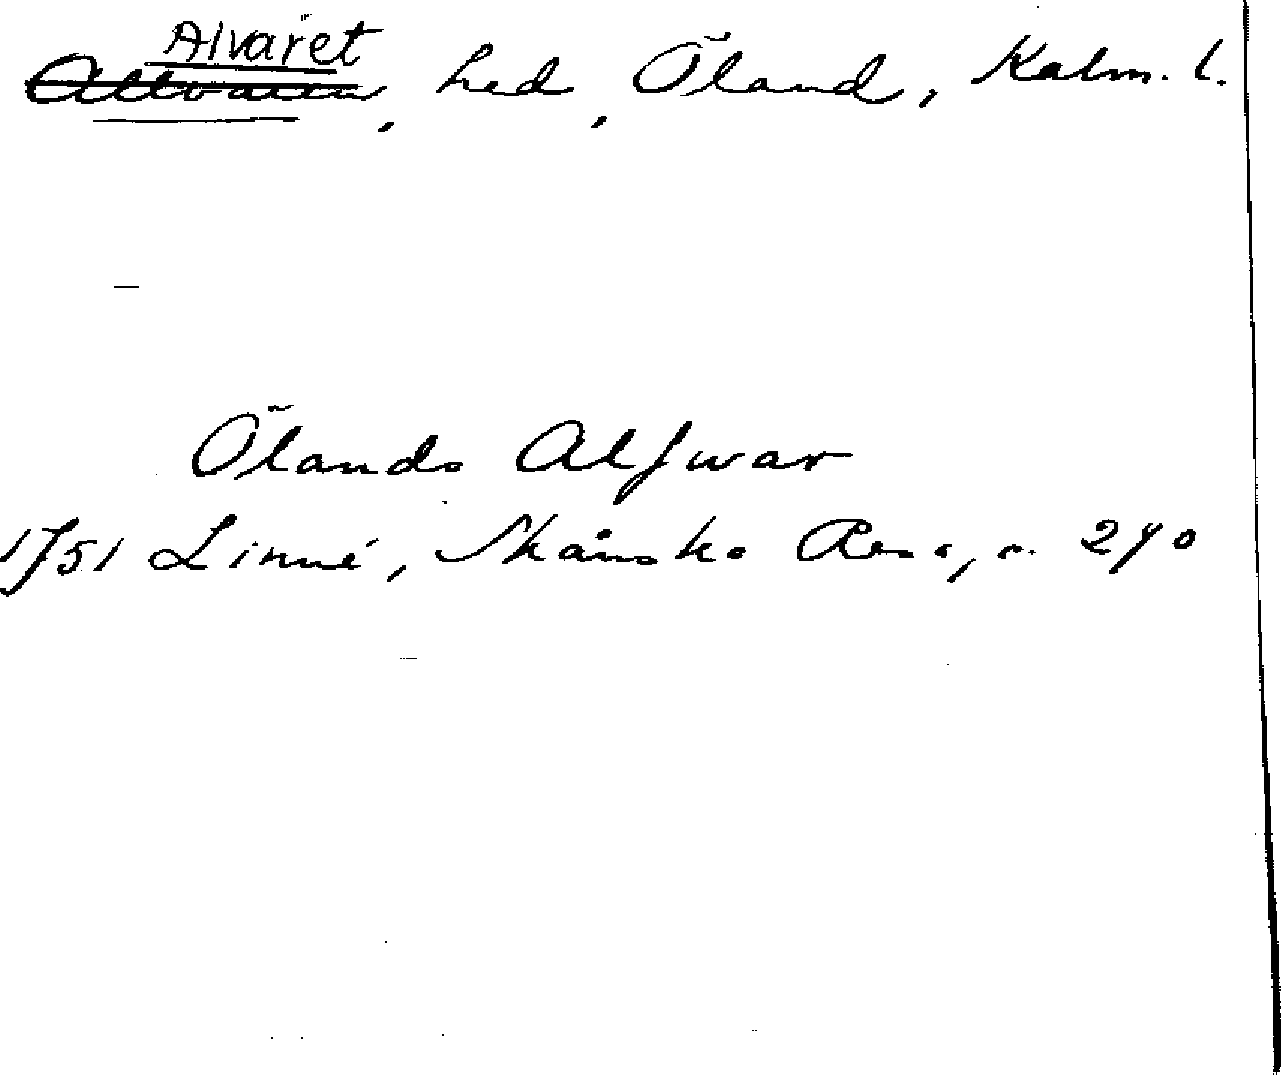 Alvaret
, hed, Öland, Kalm. l.
Ölands Alfwar
1751 Linné, Skånska Resa, s. 270